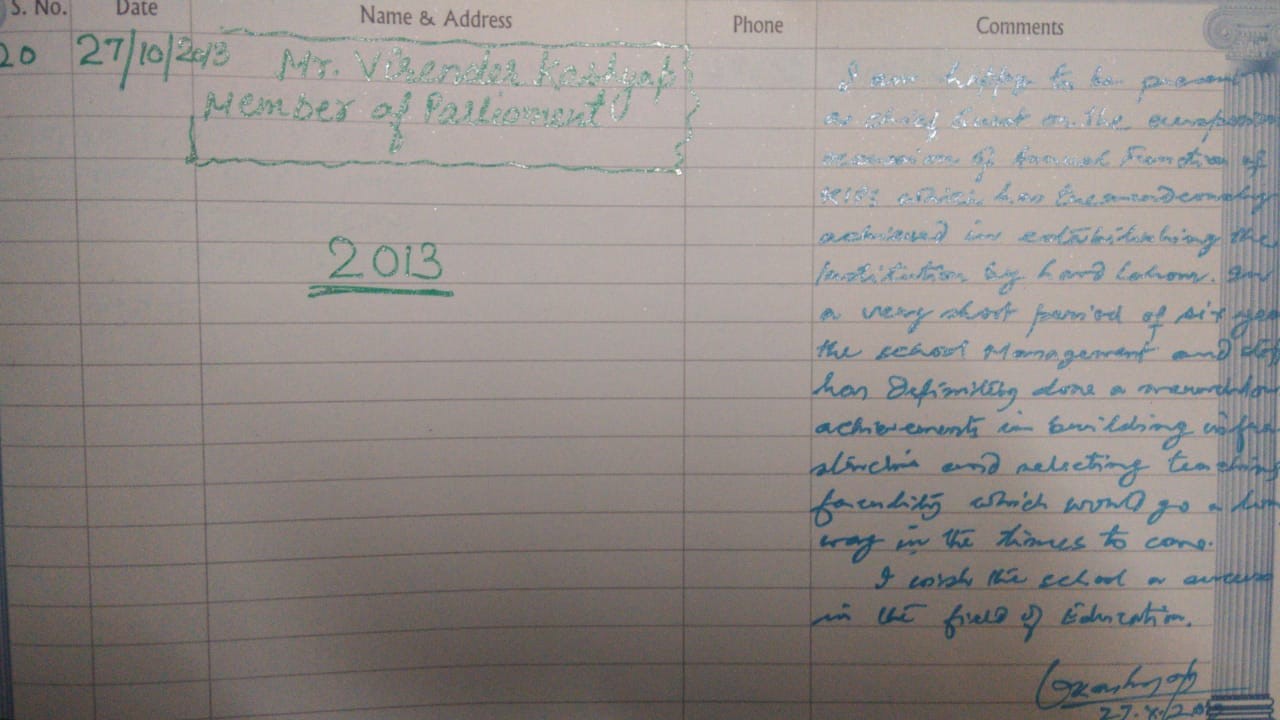 S. No. Date Name & Address Phone Comments
20 27/10/2013 Mr. Virender Kashyap
Member of Parlioment
2013
I am happy to be present
as chief Guest on the
occasion of Annual Function of
which has tremendously
achieved in establishing the
Institution by hard labour. In
a very short period of six
the school Management and
has Definitely done a
achievements in building infra
structure and selecting teaching
which would go a
way in the times to come.
I wish the school a success
in the field of Education.
Kashyap
27.X.2013